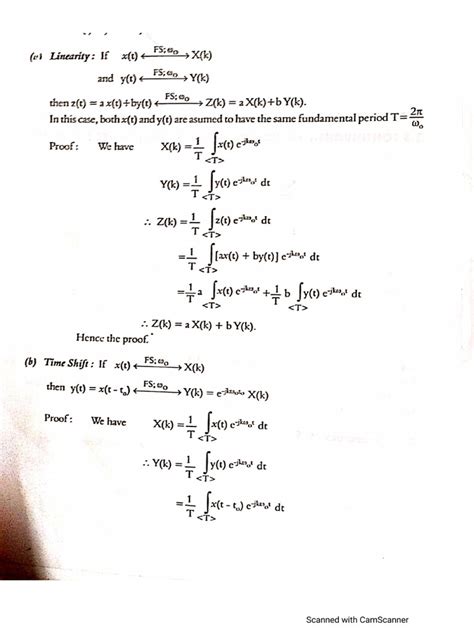 (a) Linearity : If x(t) ←FS; ω₀→ X(k)
and y(t) ←FS; ω₀→ Y(k)
then z(t) = a x(t)+by(t) ←FS; ω₀→ Z(k) = a X(k)+b Y(k).
In this case, both x(t) and y(t) are asumed to have the same fundamental period T = 2π/ω₀
Proof : We have X(k) = 1/T ∫<T> x(t) e^-jkω₀t
Y(k) = 1/T ∫<T> y(t) e^-jkω₀t dt
∴ Z(k) = 1/T ∫<T> z(t) e^-jkω₀t dt
= 1/T ∫<T> [ax(t) + by(t)] e^-jkω₀t dt
= 1/T a ∫<T> x(t) e^-jkω₀t + 1/T b ∫<T> y(t) e^-jkω₀t dt
∴ Z(k) = a X(k) + b Y(k).
Hence the proof.
(b) Time Shift : If x(t) ←FS; ω₀→ X(k)
then y(t) = x(t - t₀) ←FS; ω₀→ Y(k) = e^-jkω₀t₀ X(k)
Proof : We have X(k) = 1/T ∫<T> x(t) e^-jkω₀t dt
∴ Y(k) = 1/T ∫<T> y(t) e^-jkω₀t dt
= 1/T ∫<T> x(t - t₀) e^-jkω₀t dt
Scanned with CamScanner